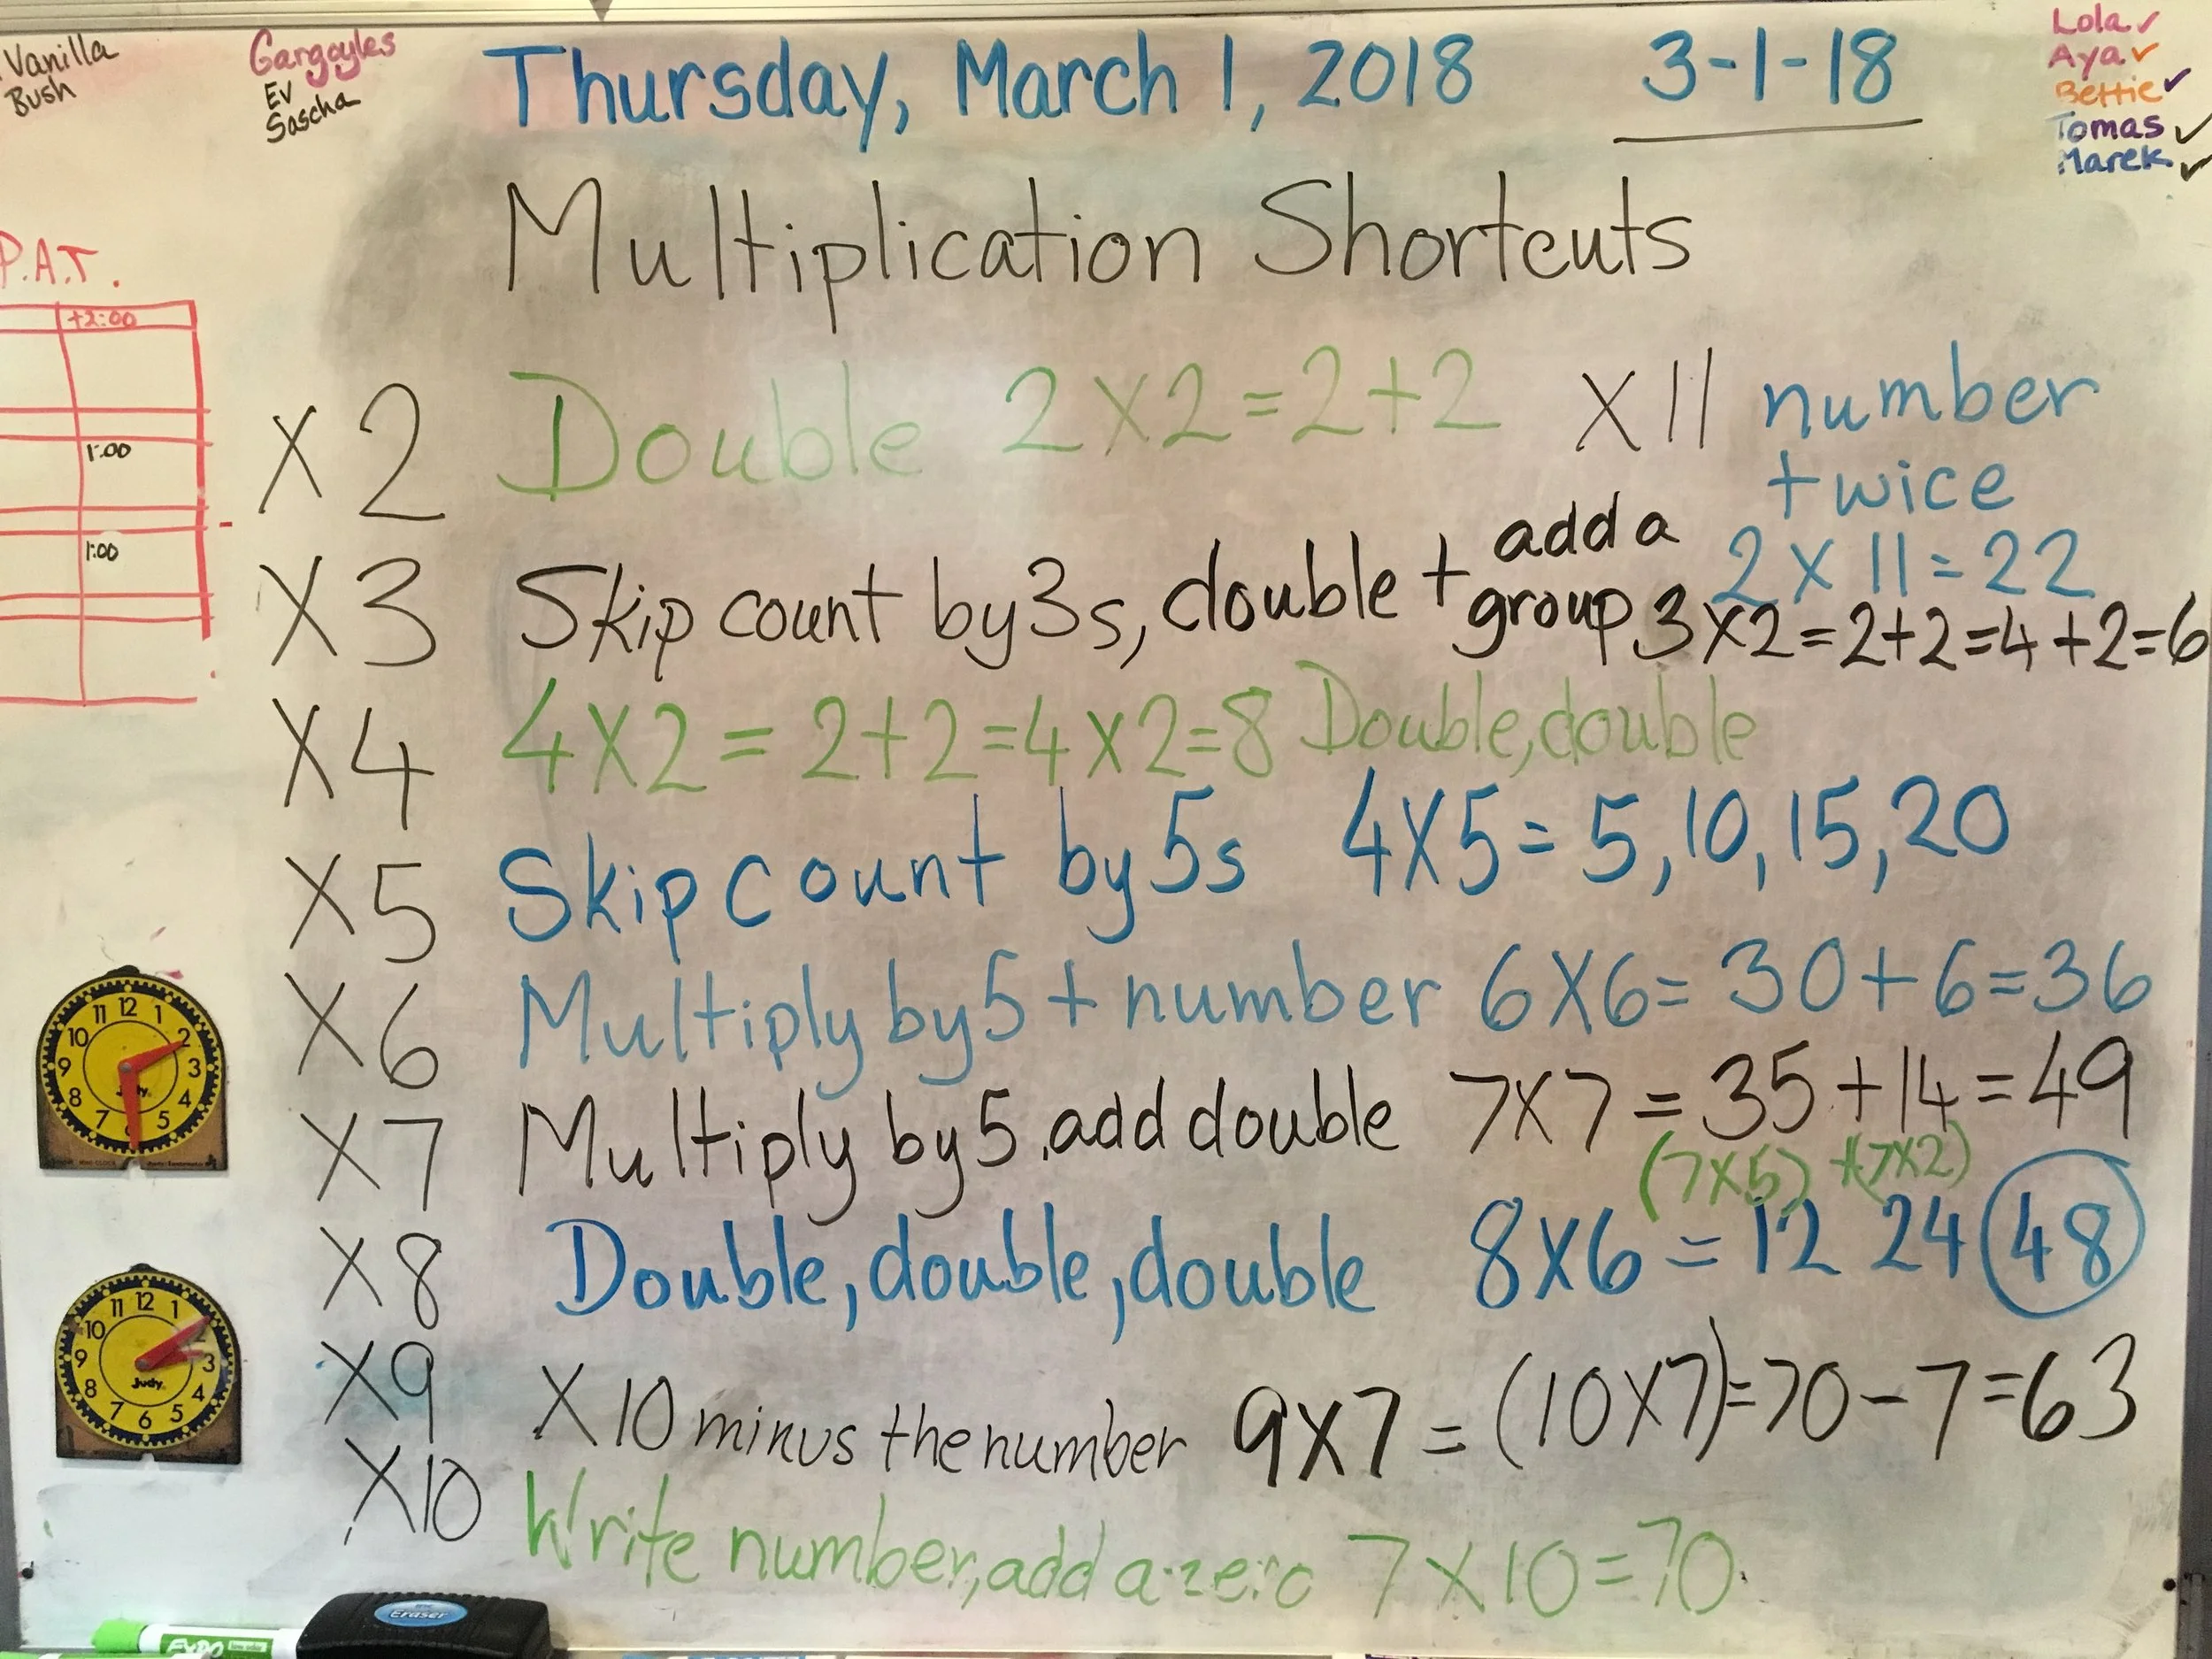 Vanilla
Bush
Gargoyles
Ev
Sascha
Thursday, March 1, 2018 3-1-18
Lola ✓
Aya ✓
Bettie ✓
Tomas ✓
Marek ✓
Multiplication Shortcuts
P.A.T.
+2:00
1:00
1:00
X2 Double 2X2=2+2
X11 number
twice
2X11=22
X3 Skip count by 3s, double + add a
group 3X2=2+2=4+2=6
X4 4X2=2+2=4X2=8 Double, double
X5 Skip count by 5s 4X5=5, 10, 15, 20
X6 Multiply by 5 + number 6X6=30+6=36
X7 Multiply by 5, add double 7X7=35+14=49
(7X5)+(7X2)
X8 Double, double, double 8X6=12 24 48
X9 X10 minus the number 9X7=(10X7)=70-7=63
X10 Write number, add a zero 7X10=70
12 1 2 3 4 5 6 7 8 9 10 11
Judy
12 1 2 3 4 5 6 7 8 9 10 11
Judy
Eraser
EXPO